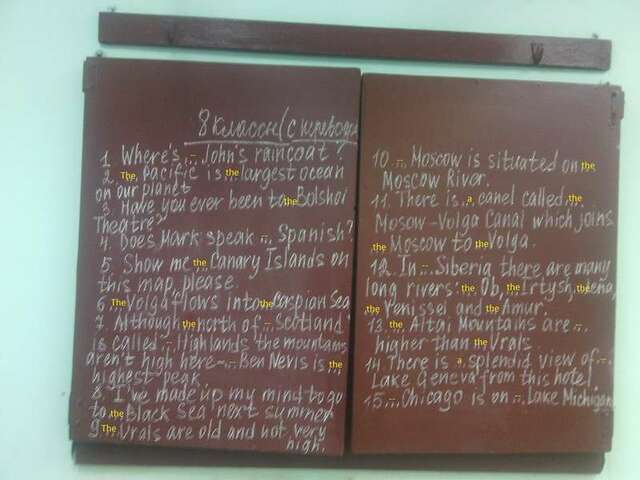 8 классы (с переводом
1. Where's -- John's raincoat?
2. The Pacific is the largest ocean
on our planet
3 Have you ever been to the Bolshoi
Theatre?
4. Does Mark speak -- Spanish?
5. Show me the Canary Islands on
this map, please.
6. The Volga flows into the Caspian Sea
7. Although the north of -- Scotland
is called -- Highlands the mountains
aren't high here -- Ben Nevis is the
highest peak.
8. I've made up my mind to go
to the Black Sea next summer
9 The Urals are old and not very
high.
10. -- Moscow is situated on the
Moscow River.
11. There is a canel called the
Moscow-Volga Canal which joins
the Moscow to the Volga.
12. In -- Siberia there are many
long rivers: the Ob, the Irtysh, the Lena,
the Yenissei and the Amur.
13. The Altai Mountains are --
higher than the Urals
14. There is a splendid view of --
Lake Geneva from this hotel.
15. -- Chicago is on -- Lake Michigan